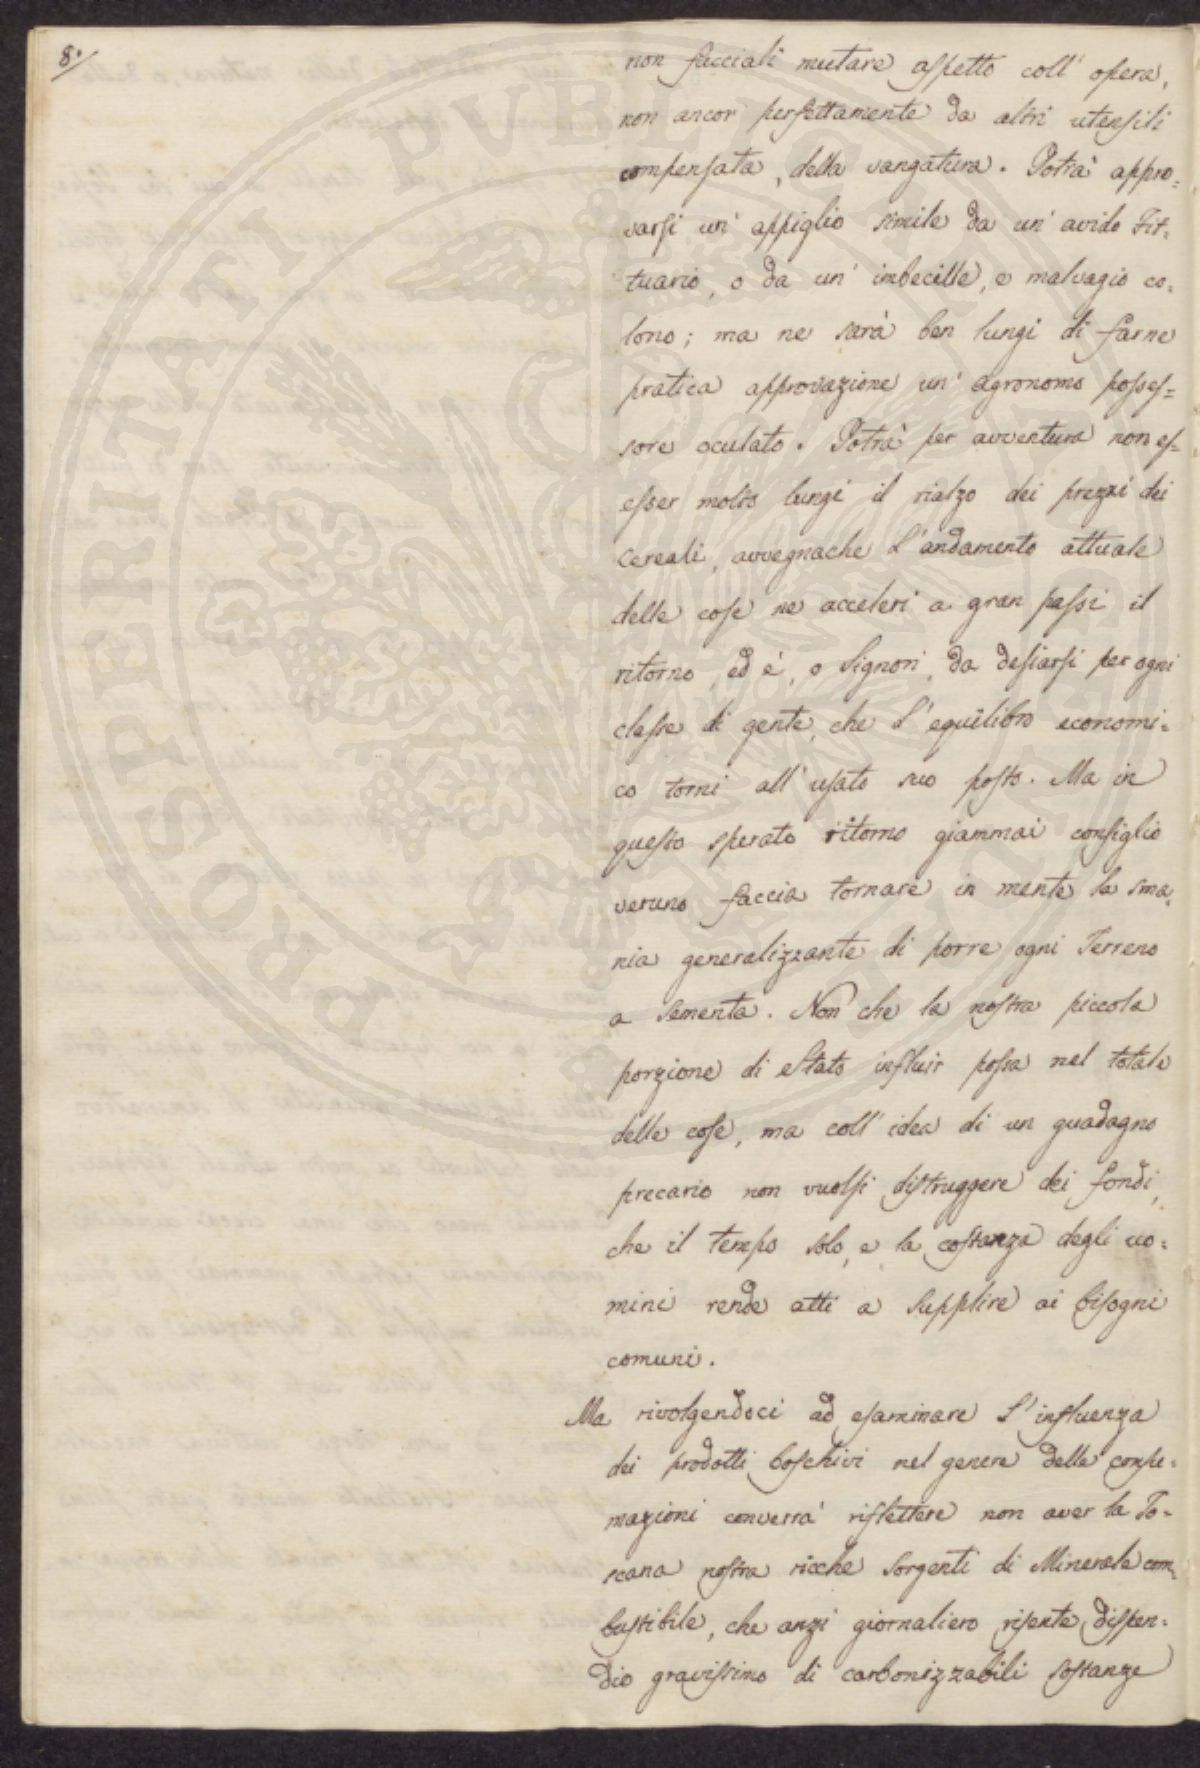 8.
non facciali mutare aspetto coll' opera,
non ancor perfettamente da altri utensili
compensata, della vangatura. Potrà appro=
varsi un' appiglio simile da un' avido Fit=
tuario, o da un' imbecille, e malvagio co=
lono; ma ne sarà ben lungi di farne
pratica approvazione un' agronomo posses=
sore oculato. Potrà per avventura non es=
esser molto lungi il rialzo dei prezzi dei
cereali, avvegnache l'andamento attuale
delle cose ne acceleri a gran passi il
ritorno, ed è, o Signori, da desiarsi per ogni
classe di gente, che l'equilibro economi=
co torni all' usato suo posto. Ma in
questo sperato ritorno giammai consiglio
veruno faccia tornare in mente la sma=
nia generalizzante di porre ogni Terreno
a sementa. Non che la nostra piccola
porzione di Stato influir possa nel totale
delle cose, ma coll' idea di un guadagno
precario non vuolsi distruggere dei fondi,
che il tempo solo, e la costanza degli uo=
mini rende atti a supplire ai bisogni
comuni.
Ma rivolgendoci ad esaminare l'influenza
dei prodotti boschivi nel genere delle consu=
mazioni converrà riflettere non aver la To=
scana nostra ricche sorgenti di Minerale com=
bustibile, che anzi giornaliero risente dispen=
dio gravissimo di carbonizzabili sostanze
PROSPERITATI PUBLICAE